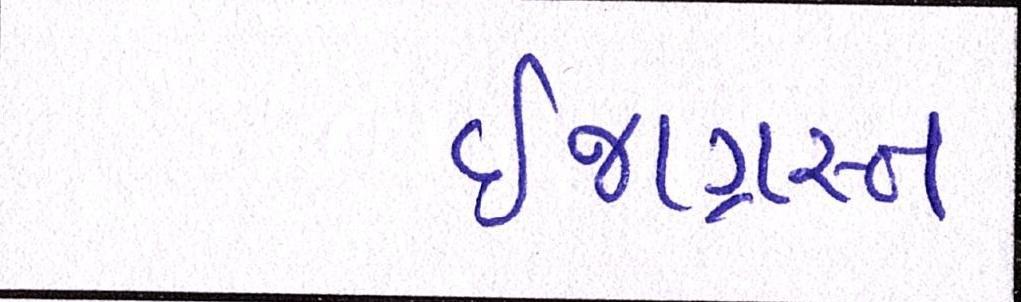 ઈજાગ્રસ્ત